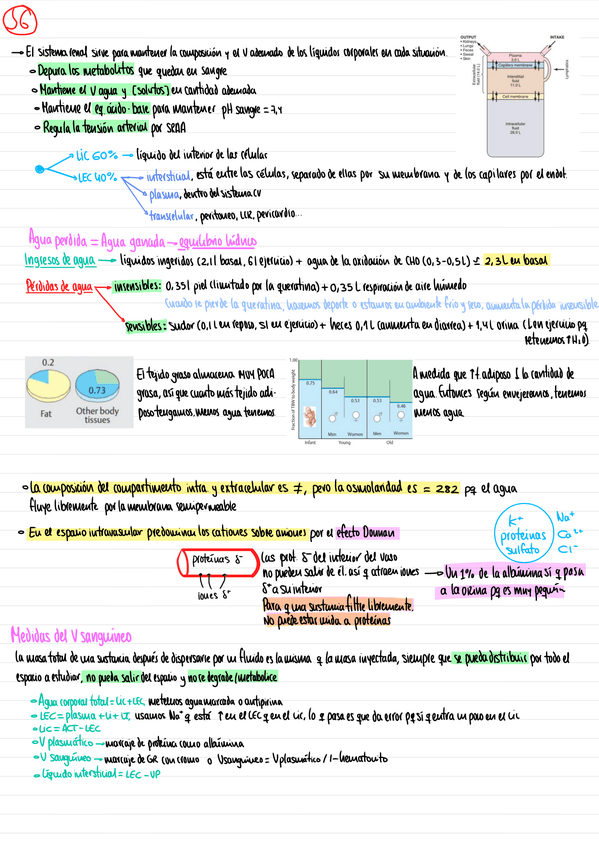 36
→ El sistema renal sirve para mantener la composición y el V adecuado de los líquidos corporales en cada situación.
• Depura los metabolitos que quedan en sangre
• Mantiene el V agua y [solutos] en cantidad adecuada
• Mantiene el eq. ácido-base para mantener pH sangre = 7,4
• Regula la tensión arterial por SRAA
OUTPUT
• Kidneys
• Lungs
• Feces
• Sweat
• Skin
INTAKE
Plasma
3.0 L
Capillary membrane
Interstitial
fluid
11.0 L
Cell membrane
Intracellular
fluid
28.0 L
Extracellular
fluid (14.0 L)
Lymphatics
LIC 60% → líquido del interior de las células
LEC 40% → intersticial, está entre las células, separado de ellas por su membrana y de los capilares por el endot.
plasma, dentro del sistema CV
transcelular, peritoneo, LCR, pericardio...
Agua perdida = Agua ganada → equilibrio hídrico
Ingresos de agua → líquidos ingeridos (2,1l basal, 6l ejercicio) + agua de la oxidación de CHO (0,3-0,5L) ≤ 2,3L en basal
Pérdidas de agua → insensibles: 0,35l piel (limitado por la queratina) + 0,35L respiración de aire húmedo
Cuando se pierde la queratina, hacemos deporte o estamos en ambiente frío y seco, aumenta la pérdida insensible
sensibles: sudor (0,1L en reposo, 5l en ejercicio) + heces 0,1L (aumenta en diarrea) + 1,4L orina (L en ejercicio pq
retenemos ↑H2O)
0.2
Fat
0.73
Other body
tissues
El tejido graso almacena MUY POCA
grasa, así que cuanto más tejido adi-
poso tengamos, menos agua tenemos
Fraction of TBW to body weight
1.00
0.75
0.64
0.53
0.53
0.46
Men Women Men Women
Infant Young Old
A medida que ↑t adiposo ↓ la cantidad de
agua. Entonces según envejecemos, tenemos
menos agua
• La composición del compartimento intra y extracelular es ≠, pero la osmolaridad es = 282 pq el agua
fluye libremente por la membrana semipermeable
• En el espacio intravascular predominan los cationes sobre aniones por el efecto Donnan
K+
proteínas
sulfato
Na+
Ca2+
Cl-
proteínas δ-
iones δ+
Las prot. δ- del interior del vaso
no pueden salir de él. así q atraen iones
δ+ a su interior
→ Un 1% de la albúmina sí q pasa
a la orina pq es muy pequeña
Para q una sustancia filtre libremente.
No puede estar unida a proteínas
Medidas del V sanguíneo
la masa total de una sustancia después de dispersarse por un fluido es la misma q la masa inyectada, siempre que se pueda distribuir por todo el
espacio a estudiar, no pueda salir del espacio y no se degrade/metabolice
• Agua corporal total = LIC+LEC, metemos agua marcada o antipirina
• LEC = plasma + LI + LT, usamos Na+ q está ↑ en el LEC q en el LIC, lo q pasa es que da error pq sí q entra un poco en el LIC
• LIC = ACT - LEC
• V plasmático → marcaje de proteína como albúmina
• V sanguíneo → marcaje de GR con cromo o Vsanguíneo = Vplasmático / 1-hematocrito
• Líquido intersticial = LEC - VP